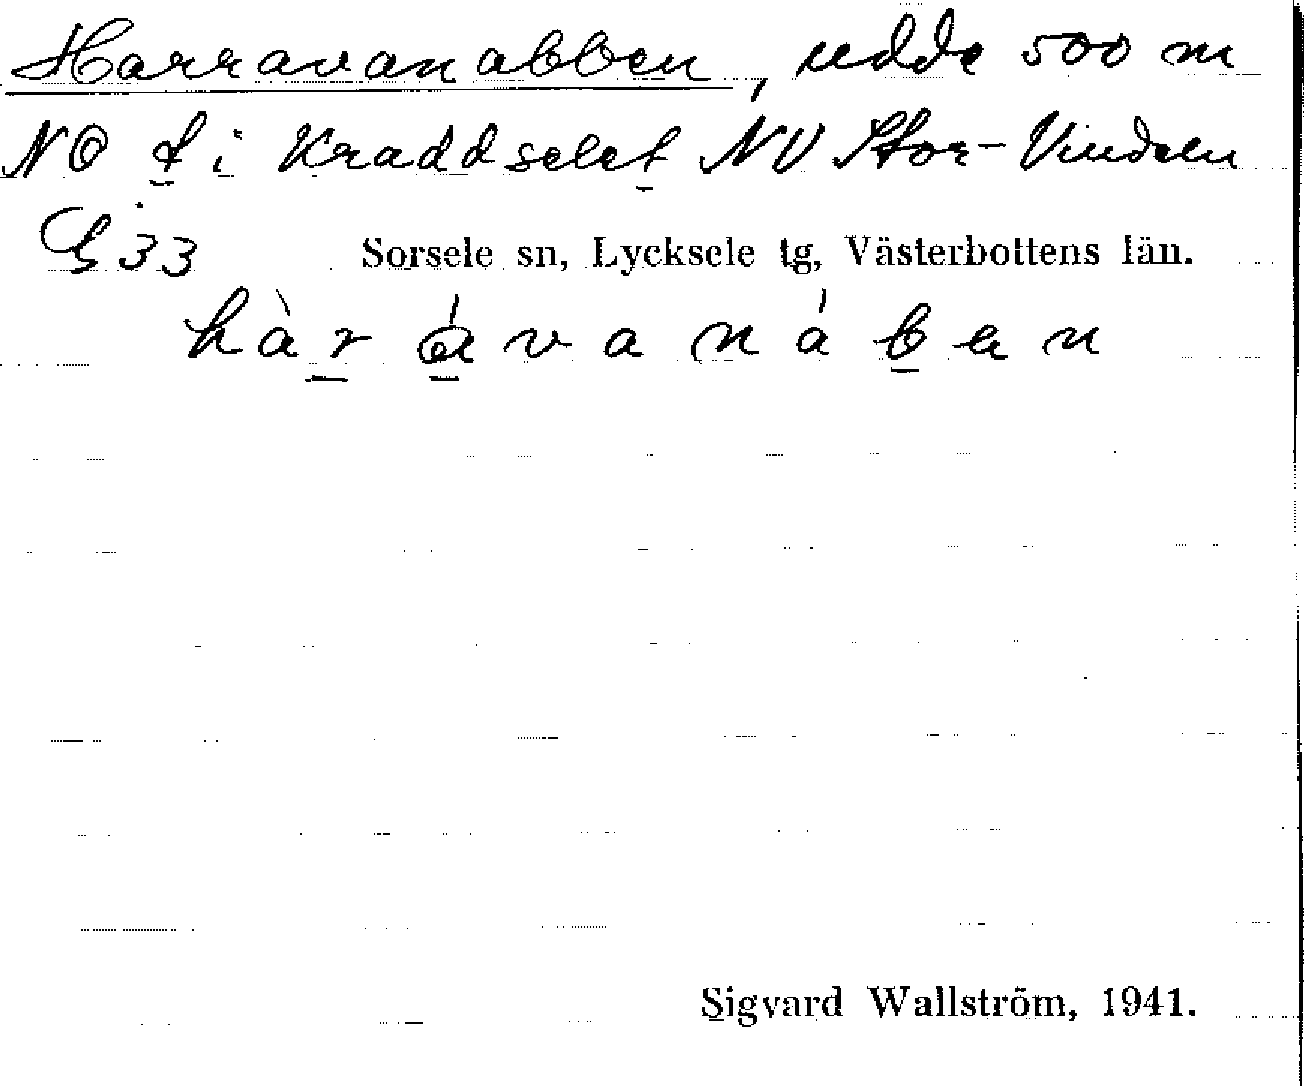 Harravanabben, udde 500 m
NO t i Kraddselet NV Stor-Vindeln
G 33 Sorsele sn, Lycksele tg, Västerbottens län.
hàr áv a n á b e n
Sigvard Wallström, 1941.